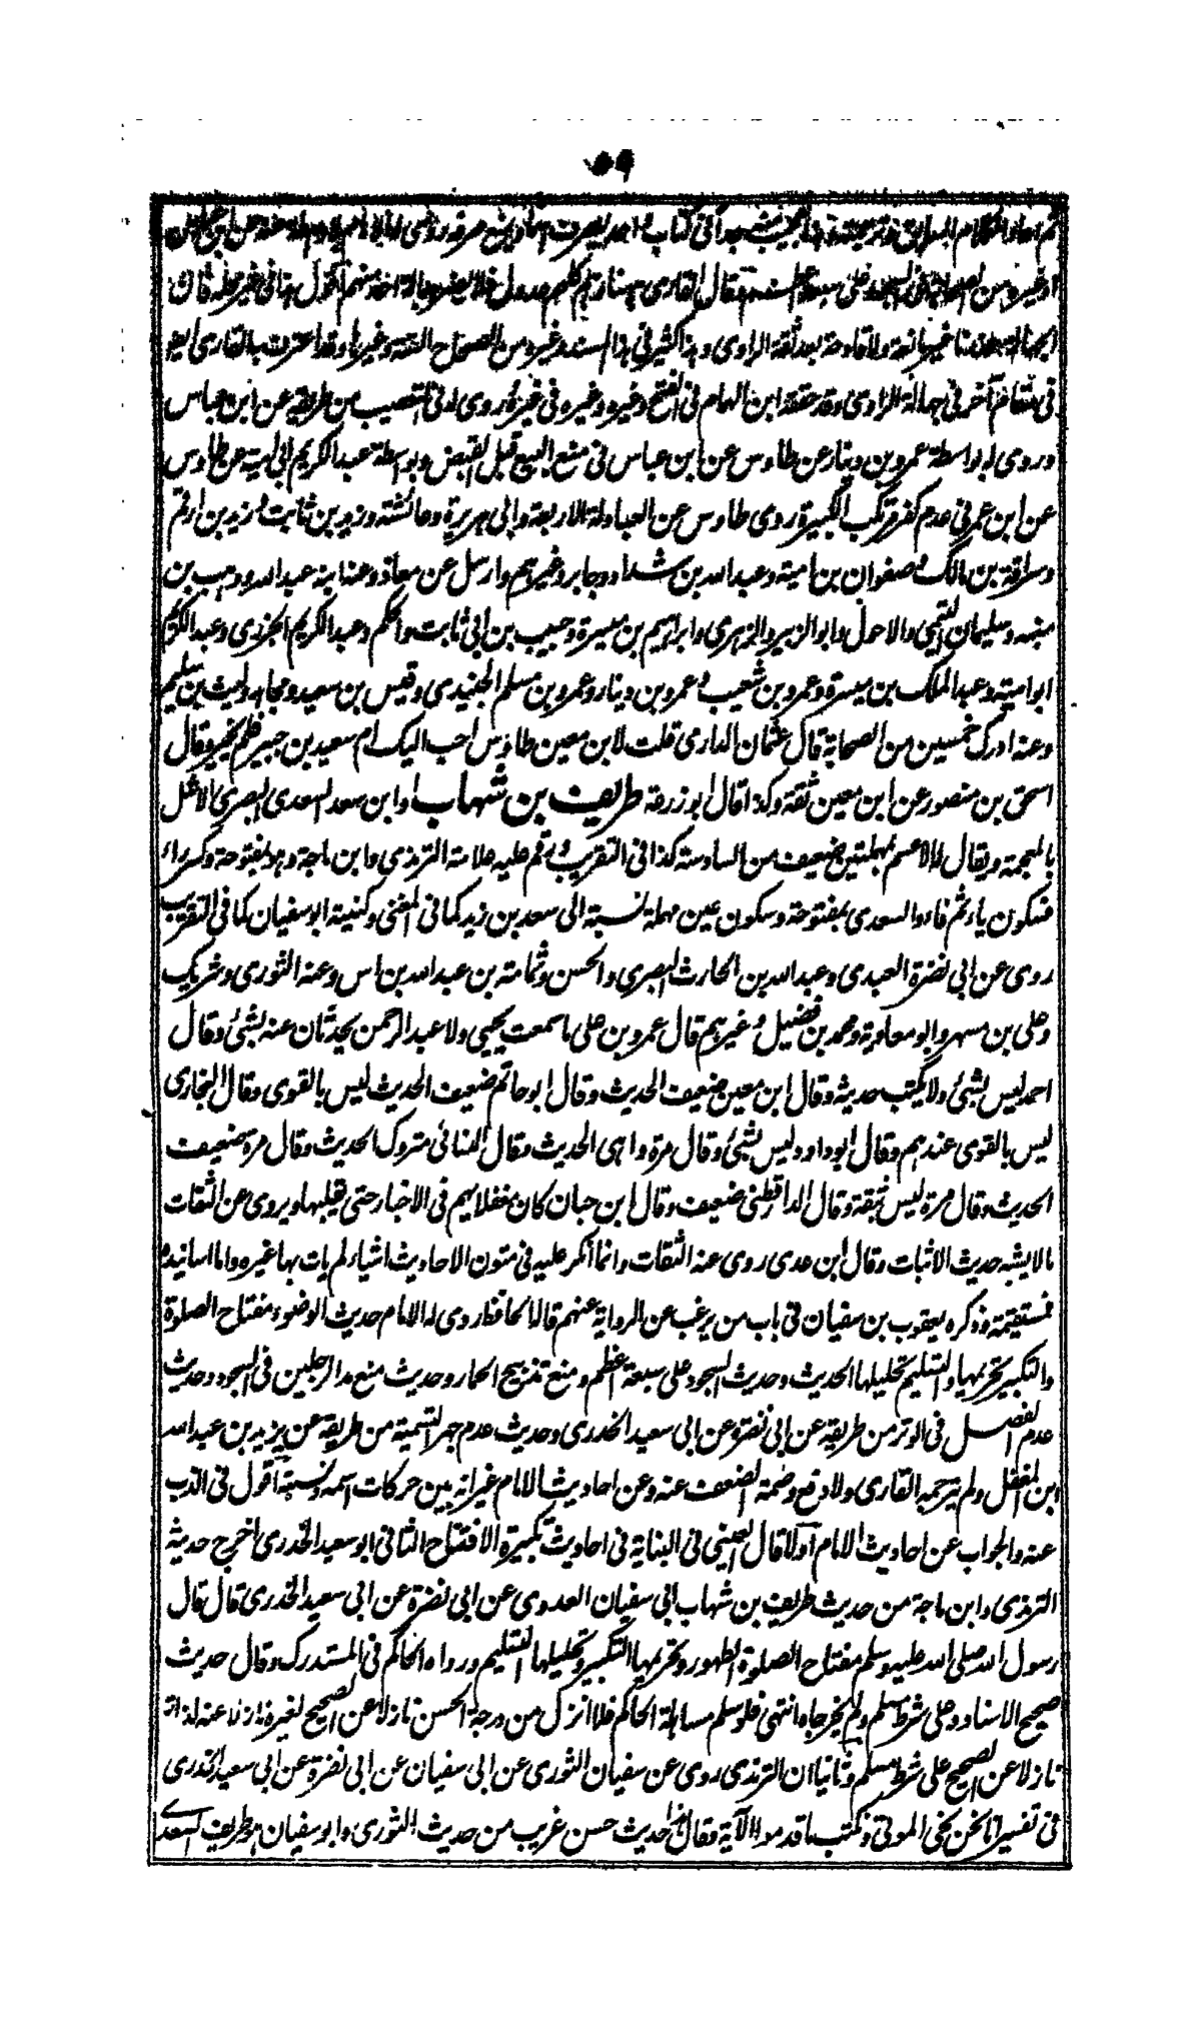 ٥٩
في مقام آخر في جهالة الراوى وقد حققه ابن الهمام في الفتح وغيره وغيره في غيره وروى له في التقصيب من طريقه عن ابن عباس
وروى له بواسطة عمرو بن دينار عن طاوس عن ابن عباس في منع البيع قبل القبض وبواسطة عبد الكريم ابى امية عن طاوس
عن ابن عمر في عدم كفر مرتكب الكبيرة روى طاوس عن العبادلة الاربعة وابى هريرة وعائشة وزيد بن ثابت وزيد بن ارقم
وسراقة بن مالك وصفوان بن امية وعبد الله بن شداد وجابر وغيرهم وارسل عن معاذ وعنه ابنه عبد الله ووهب بن
منبه وسليمان التيمى والاحول وابو الزبير والزهرى وابراهيم بن ميسرة وحبيب بن ابى ثابت والحكم وعبد الكريم الجزرى وعبد الكريم
ابو امية وعبد الملك بن ميسرة وعمرو بن شعيب وعمرو بن دينار وعمرو بن مسلم الجنيدى وقيس بن سعيد ومجاهد وليث بن سليم
وعنه ادرك خمسين من الصحابة قال عثمان الدارى قلت لابن معين طاوس احب اليك ام سعيد بن جبير فلم يخير وقال
اسحق بن منصور عن ابن معين ثقة وكذا قال ابو زرعة طريف بن شهاب او ابن سعد السعدى البصرى الاشل
بالمعجمة ويقال له الاعسم بمهملتين ضعيف من السادسة كذا في التقريب ورقم عليه علامة الترمذى وابن ماجة وهو بمفتوحة وكسر راء
فسكون ياء ثم فاء والسعدى بمفتوحة وسكون عين مهملة نسبة الى سعد بن زيد كما في المغنى وكنيته ابو سفيان كما في التقريب
روى عن ابى نضرة العبدى وعبد الله بن الحارث البصرى والحسن وثمامة بن عبد الله بن انس وعنه الثورى وشريك
وعلى بن مسهر وابو معاوية ومحمد بن فضيل وغيرهم قال عمرو بن على ما سمعت يحيى ولا عبد الرحمن يحدثان عنه بشئ وقال
احمد ليس بشئ ولا يكتب حديثه وقال ابن معين ضعيف الحديث وقال ابو حاتم ضعيف الحديث ليس بالقوى وقال البخارى
ليس بالقوى عندهم وقال ابو داود ليس بشئ وقال مرة واهى الحديث وقال النسائى متروك الحديث وقال مرة ضعيف
الحديث وقال مرة ليس بثقة وقال الدارقطنى ضعيف وقال ابن حبان كان مغفلا يهم في الاخبار حتى يقلبها ويروى عن الثقات
مالا يشبه حديث الاثبات وقال ابن عدى روى عنه الثقات وانما انكر عليه في متون الاحاديث اشياء لم يات بها غيره واما اسانيده
فمستقيمة وذكره يعقوب بن سفيان في باب من يرغب عن الرواية عنهم قاله الحافظ روى له الامام حديث الوضوء مفتاح الصلوة
والتكبير تحريمها والتسليم تحليلها الحديث وحديث السجود على سبعة اعظم ومنع تذبيح الحمار وحديث منع مد الرجلين في السجود وحديث
عدم الفصل في الوتر من طريقه عن ابى نضرة عن ابى سعيد الخدرى وحديث عدم جهر التسمية من طريقه عن يزيد بن عبد الله
ابن المغفل ولم يترجمه القارى ولا دفع وصمة الضعف عنه وعن احاديث الامام غير انه بين حركات اسمه ونسبته اقول في الذب
عنه والجواب عن احاديث الامام اولا قال العينى في البناية في احاديث تكبيرة الافتتاح الثانى ابو سعيد الخدرى اخرج حديثه
الترمذى وابن ماجة من حديث طريف بن شهاب ابى سفيان العدوى عن ابى نضرة عن ابى سعيد الخدرى قال قال
رسول الله صلى الله عليه وسلم مفتاح الصلوة الطهور وتحريمها التكبير وتحليلها التسليم ورواه الحاكم في المستدرك وقال حديث
صحيح الاسناد وعلى شرط مسلم ولم يخرجاه انتهى فلو سلم مساهلة الحاكم فلا انزل من درجة الحسن نازلا عن الصحيح لغيره نازلا عنه لذاته
نازلا عن الصحيح على شرط مسلم وثانيا ان الترمذى روى عن سفيان الثورى عن ابى سفيان عن ابى نضرة عن ابى سعيد الخدرى
في تفسير انا نحن نحى الموتى ونكتب ما قدموا الآية وقال هذا حديث حسن غريب من حديث الثورى وابو سفيان هو طريف السعدى